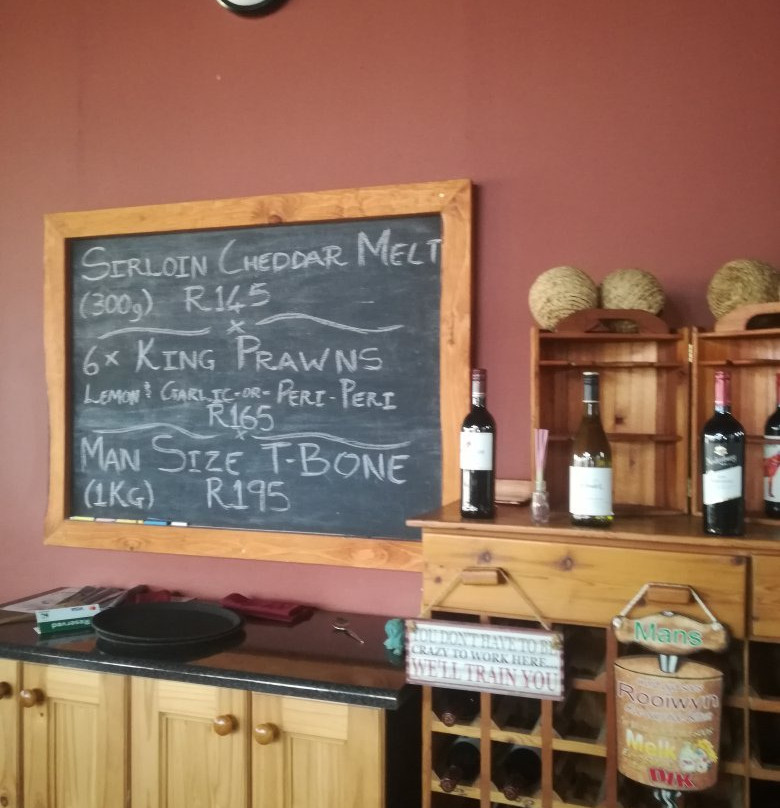 SIRLOIN CHEDDAR MELT
(300g) R145
6x KING PRAWNS
LEMON & GARLIC-OR-PERI-PERI
R165
MAN SIZE T-BONE
(1KG) R195
Reserved
YOU DON'T HAVE TO BE
CRAZY TO WORK HERE...
WE'LL TRAIN YOU
Mans
Rooiwyn
Melk